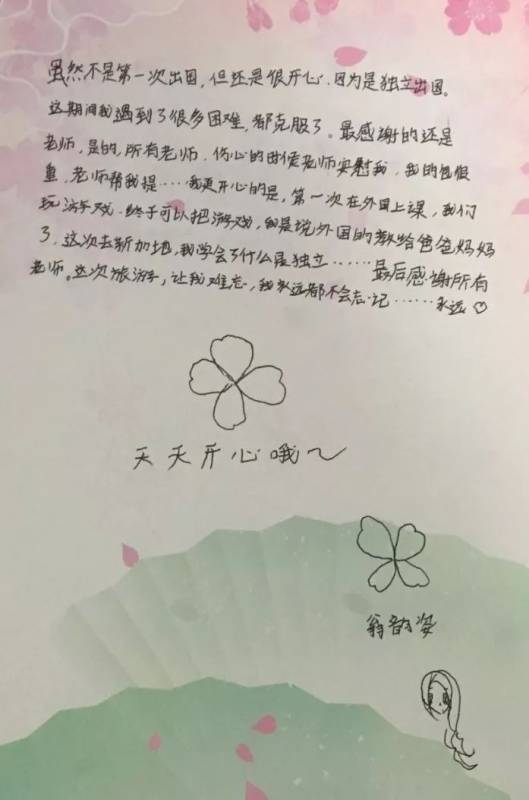 虽然不是第一次出国，但还是很开心，因为是独立出国。
这期间我遇到了很多困难，都克服了。最感谢的还是
老师，是的，所有老师，伤心的时候老师安慰我，我的包很
重，老师帮我提……我更开心的是，第一次在外国上课，我们
玩游戏，终于可以把游戏，我是说外国的教给爸爸妈妈
了，这次去新加坡，我学会了什么是独立……最后感谢所有
老师。这次旅游，让我难忘，我永远都不会忘记……永远
天天开心哦~
翁韵姿